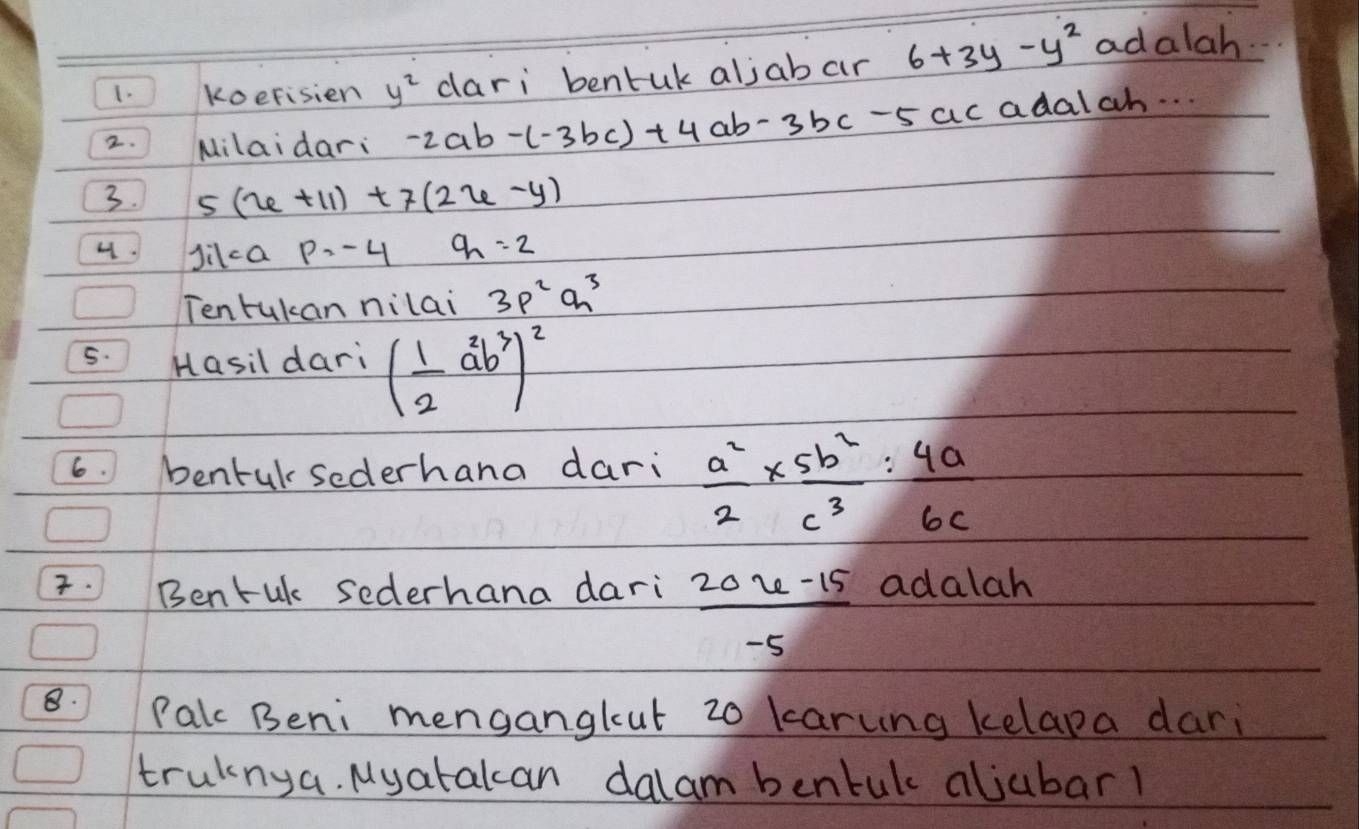 1. Koefisien y² dari bentuk aljabar 6+3y-y² adalah...
2. Nilai dari -2ab-(-3bc)+4ab-3bc-5ac adalah...
3. 5(x+11)+7(2x-y)
4. Jika p=-4 q=2
Tentukan nilai 3p²q³
5. Hasil dari (1/2 a²b³)²
6. bentuk sederhana dari a²/2 × 5b²/c³ : 4a/6c
7. Bentuk sederhana dari 20x-15/-5 adalah
8. Pak Beni mengangkut 20 karung kelapa dari
truknya. Nyatakan dalam bentuk aljabar!